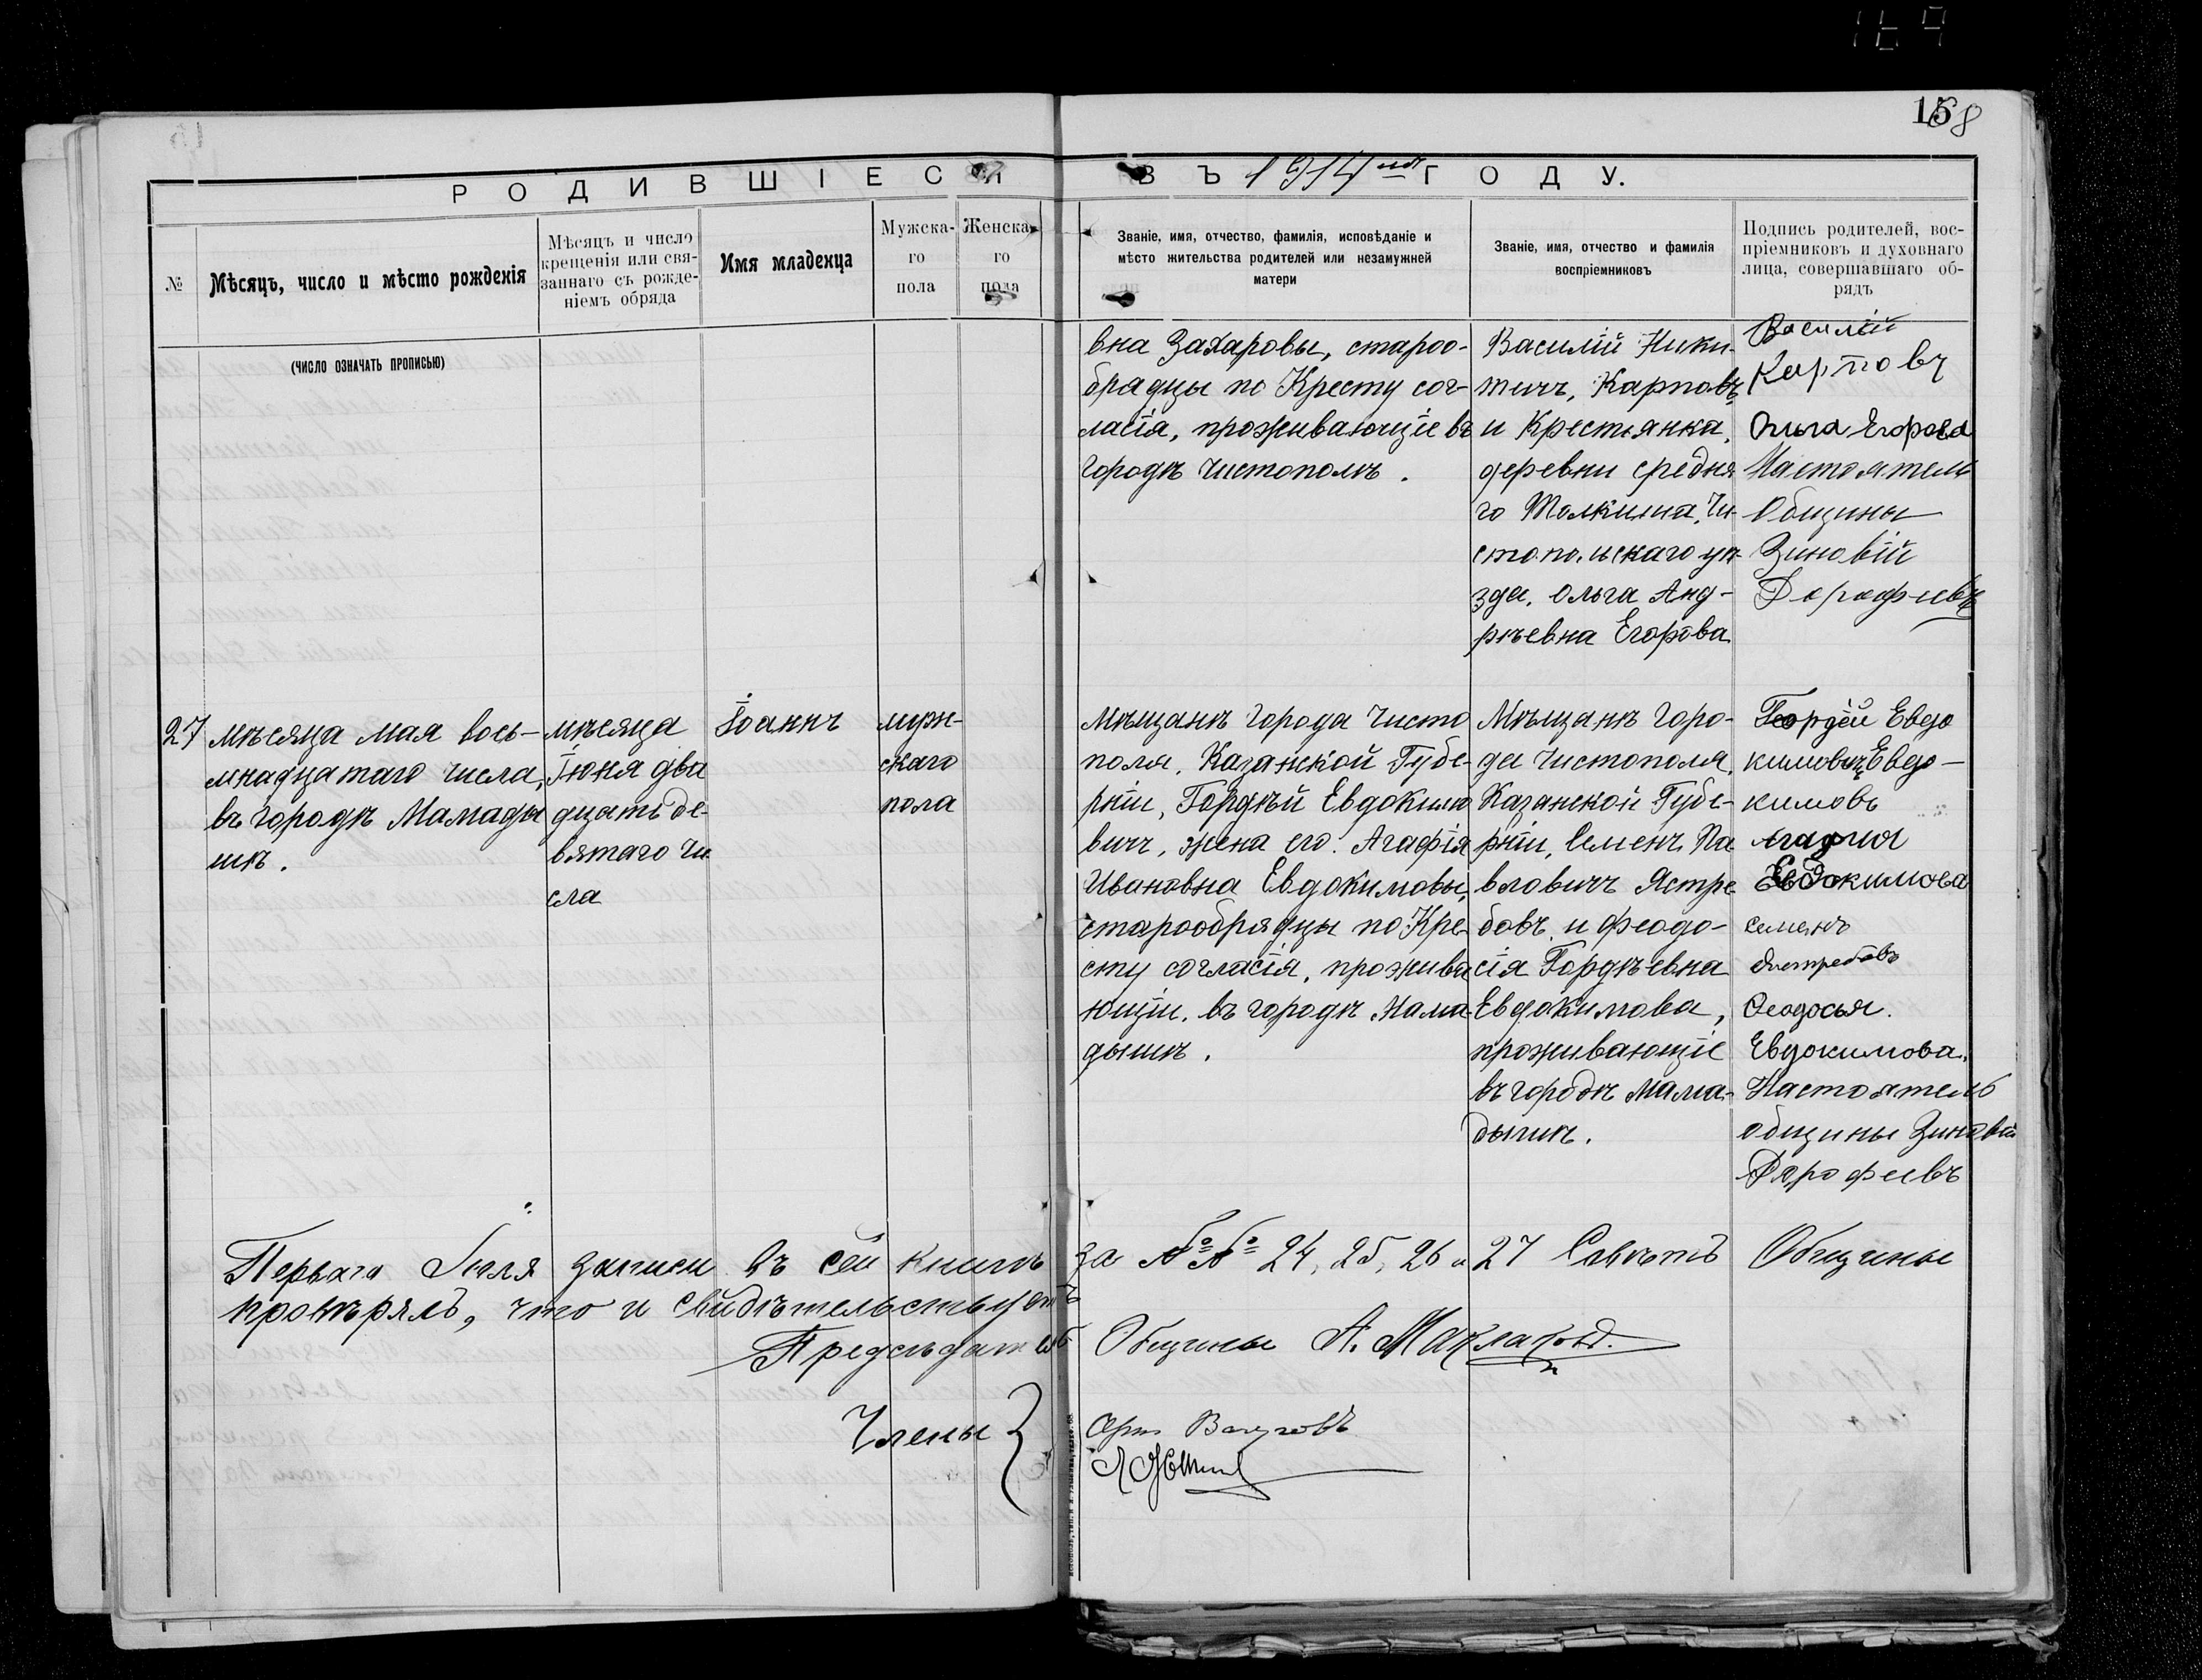 15
68
РОДИВШІЕСЯ ВЪ 1914мъ ГОДУ.
№
Мѣсяцъ, число и мѣсто рожденія
Мѣсяцъ и число
крещенія или свя-
заннаго съ рожде-
ніемъ обряда
Имя младенца
Мужска-
го
пола
Женска-
го
пола
Званіе, имя, отчество, фамилія, исповѣданіе и
мѣсто жительства родителей или незамужней
матери
Званіе, имя, отчество и фамилія
воспріемниковъ
Подпись родителей, вос-
пріемниковъ и духовнаго
лица, совершавшаго об-
рядъ
(ЧИСЛО ОЗНАЧАТЬ ПРОПИСЬЮ)
вна Захаровы, староо-
брядцы по Кресту сог-
ласія, проживающіе въ
городѣ Чистополѣ.
Василій Ники-
тичъ, Карповъ
и Крестьянка,
деревни средня
го Толкиша, Чи-
стопольскаго уѣ-
зда, Ольга Анд-
рѣевна Егорова
Василій
Карповъ
Ольга Егорова
Настоятель
Общины
Зиновій
Дорофеевъ
27
мѣсяца мая вось-
мнадцатаго числа,
въ городѣ Мамады
шѣ.
мѣсяца
Іюня два
дцать де-
вятаго чи
сла
Іоаннъ
муж-
скаго
пола
Мѣщанѣ города Чисто
поля, Казанской Губе-
рніи, Гордѣй Евдокимо
вичъ, жена его: Агафія
Ивановна Евдокимовы,
старообрядцы по Кре-
сту согласія, прожива
ющіи, въ городѣ Мама
дышѣ.
Мѣщанѣ горо-
да Чистополя,
Казанской Губе-
рніи, Семенъ Па
вловичъ Ястре
бовъ, и Феодо-
сія Гордѣевна
Евдокимова,
проживающіе
въ городѣ Мама-
дышѣ.
Гордей Евдо
кимовичъ Евдо-
кимовъ
Агафия
Евдокимова
Семенъ
Ястребовъ
Феодосья.
Евдокимова.
Настоятель
общины Зиновій
Дорофеевъ
Перваго Іюля записи въ сей книгѣ за №№ 24, 25, 26 и 27 Совѣтъ Общины
провѣрялъ, что и свидѣтельствуетъ
Предсѣдатель Общины А. Маклаковъ.
Члены